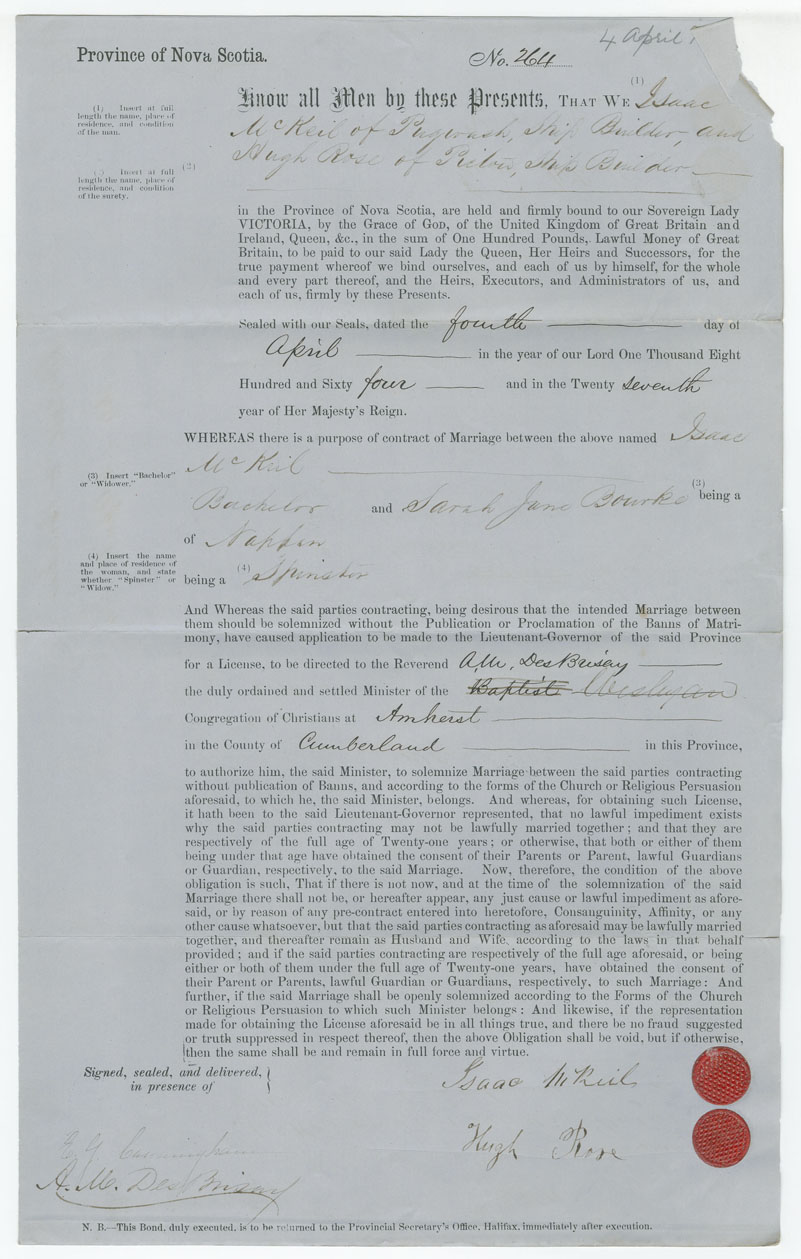 4 April
Province of Nova Scotia.
No. 264
(1) Insert at full
length the name, place of
residence, and condition
of the man.
Know all Men by these Presents, THAT WE (1) Isaac
McKeil of Pugwash, Ship Builder, and
(2) Insert at full
length the name, place of
residence, and condition
of the surety.
(2) Hugh Rose of Pictou, Ship Builder
in the Province of Nova Scotia, are held and firmly bound to our Sovereign Lady
VICTORIA, by the Grace of GOD, of the United Kingdom of Great Britain and
Ireland, Queen, &c., in the sum of One Hundred Pounds, Lawful Money of Great
Britain, to be paid to our said Lady the Queen, Her Heirs and Successors, for the
true payment whereof we bind ourselves, and each of us by himself, for the whole
and every part thereof, and the Heirs, Executors, and Administrators of us, and
each of us, firmly by these Presents.
Sealed with our Seals, dated the fourth day of
April in the year of our Lord One Thousand Eight
Hundred and Sixty four and in the Twenty seventh
year of Her Majesty's Reign.
WHEREAS there is a purpose of contract of Marriage between the above named Isaac
McKeil
(3) Insert "Bachelor"
or "Widower."
(3) being a
Bachelor and Sarah Jane Bourke
of Nappan
(4) Insert the name
and place of residence of
the woman, and state
whether "Spinster" or
"Widow."
being a (4) Spinster
And Whereas the said parties contracting, being desirous that the intended Marriage between
them should be solemnized without the Publication or Proclamation of the Banns of Matri-
mony, have caused application to be made to the Lieutenant-Governor of the said Province
for a License, to be directed to the Reverend A.M. DesBrisay
the duly ordained and settled Minister of the Baptist Wesleyan
Congregation of Christians at Amherst
in the County of Cumberland in this Province,
to authorize him, the said Minister, to solemnize Marriage between the said parties contracting
without publication of Banns, and according to the forms of the Church or Religious Persuasion
aforesaid, to which he, the said Minister, belongs. And whereas, for obtaining such License,
it hath been to the said Lieutenant-Governor represented, that no lawful impediment exists
why the said parties contracting may not be lawfully married together; and that they are
respectively of the full age of Twenty-one years; or otherwise, that both or either of them
being under that age have obtained the consent of their Parents or Parent, lawful Guardians
or Guardian, respectively, to the said Marriage. Now, therefore, the condition of the above
obligation is such, That if there is not now, and at the time of the solemnization of the said
Marriage there shall not be, or hereafter appear, any just cause or lawful impediment as afore-
said, or by reason of any pre-contract entered into heretofore, Consanguinity, Affinity, or any
other cause whatsoever, but that the said parties contracting as aforesaid may be lawfully married
together, and thereafter remain as Husband and Wife, according to the laws in that behalf
provided; and if the said parties contracting are respectively of the full age aforesaid, or being
either or both of them under the full age of Twenty-one years, have obtained the consent of
their Parent or Parents, lawful Guardian or Guardians, respectively, to such Marriage: And
further, if the said Marriage shall be openly solemnized according to the Forms of the Church
or Religious Persuasion to which such Minister belongs: And likewise, if the representation
made for obtaining the License aforesaid be in all things true, and there be no fraud suggested
or truth suppressed in respect thereof, then the above Obligation shall be void, but if otherwise,
then the same shall be and remain in full force and virtue.
Signed, sealed, and delivered,
in presence of
Isaac McKeil
Hugh Rose
E. G. Cunningham
A. M. DesBrisay
N. B.—This Bond, duly executed, is to be returned to the Provincial Secretary's Office, Halifax, immediately after execution.